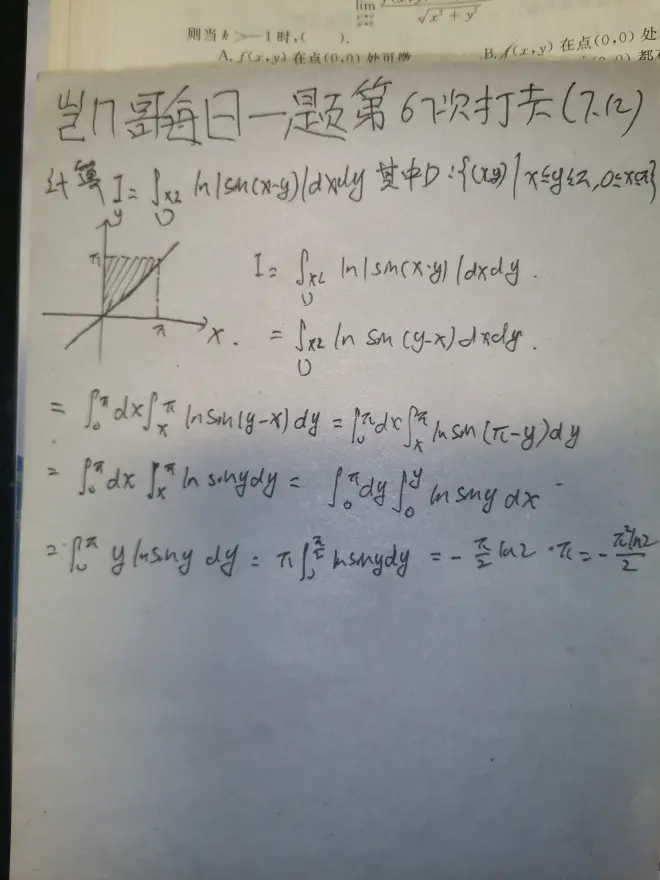 lim
√x²+y²
则当k>-1时,( ).
A. f(x,y)在点(0,0)处可微 B. f(x,y)在点(0,0)处
岂几哥每日一题第67次打卡(7.12)
计算 I=∫x2 D ln|sin(x-y)|dxdy 其中D:{(xy)|x≤y≤π,0≤x≤π}
y
π
π x.
I=∫x2 D ln|sin(x-y)|dxdy.
=∫x2 D ln sin(y-x)dxdy.
=∫₀^π dx∫ₓ^π lnsin(y-x)dy=∫₀^π dx∫ₓ^π lnsin(π-y)dy
=∫₀^π dx∫ₓ^π ln sinydy=∫₀^π dy∫₀^y lnsiny dx
=∫₀^π y lnsiny dy=π∫₀^{π/2} lnsinydy=-π/2 ln2·π=-π²ln2/2